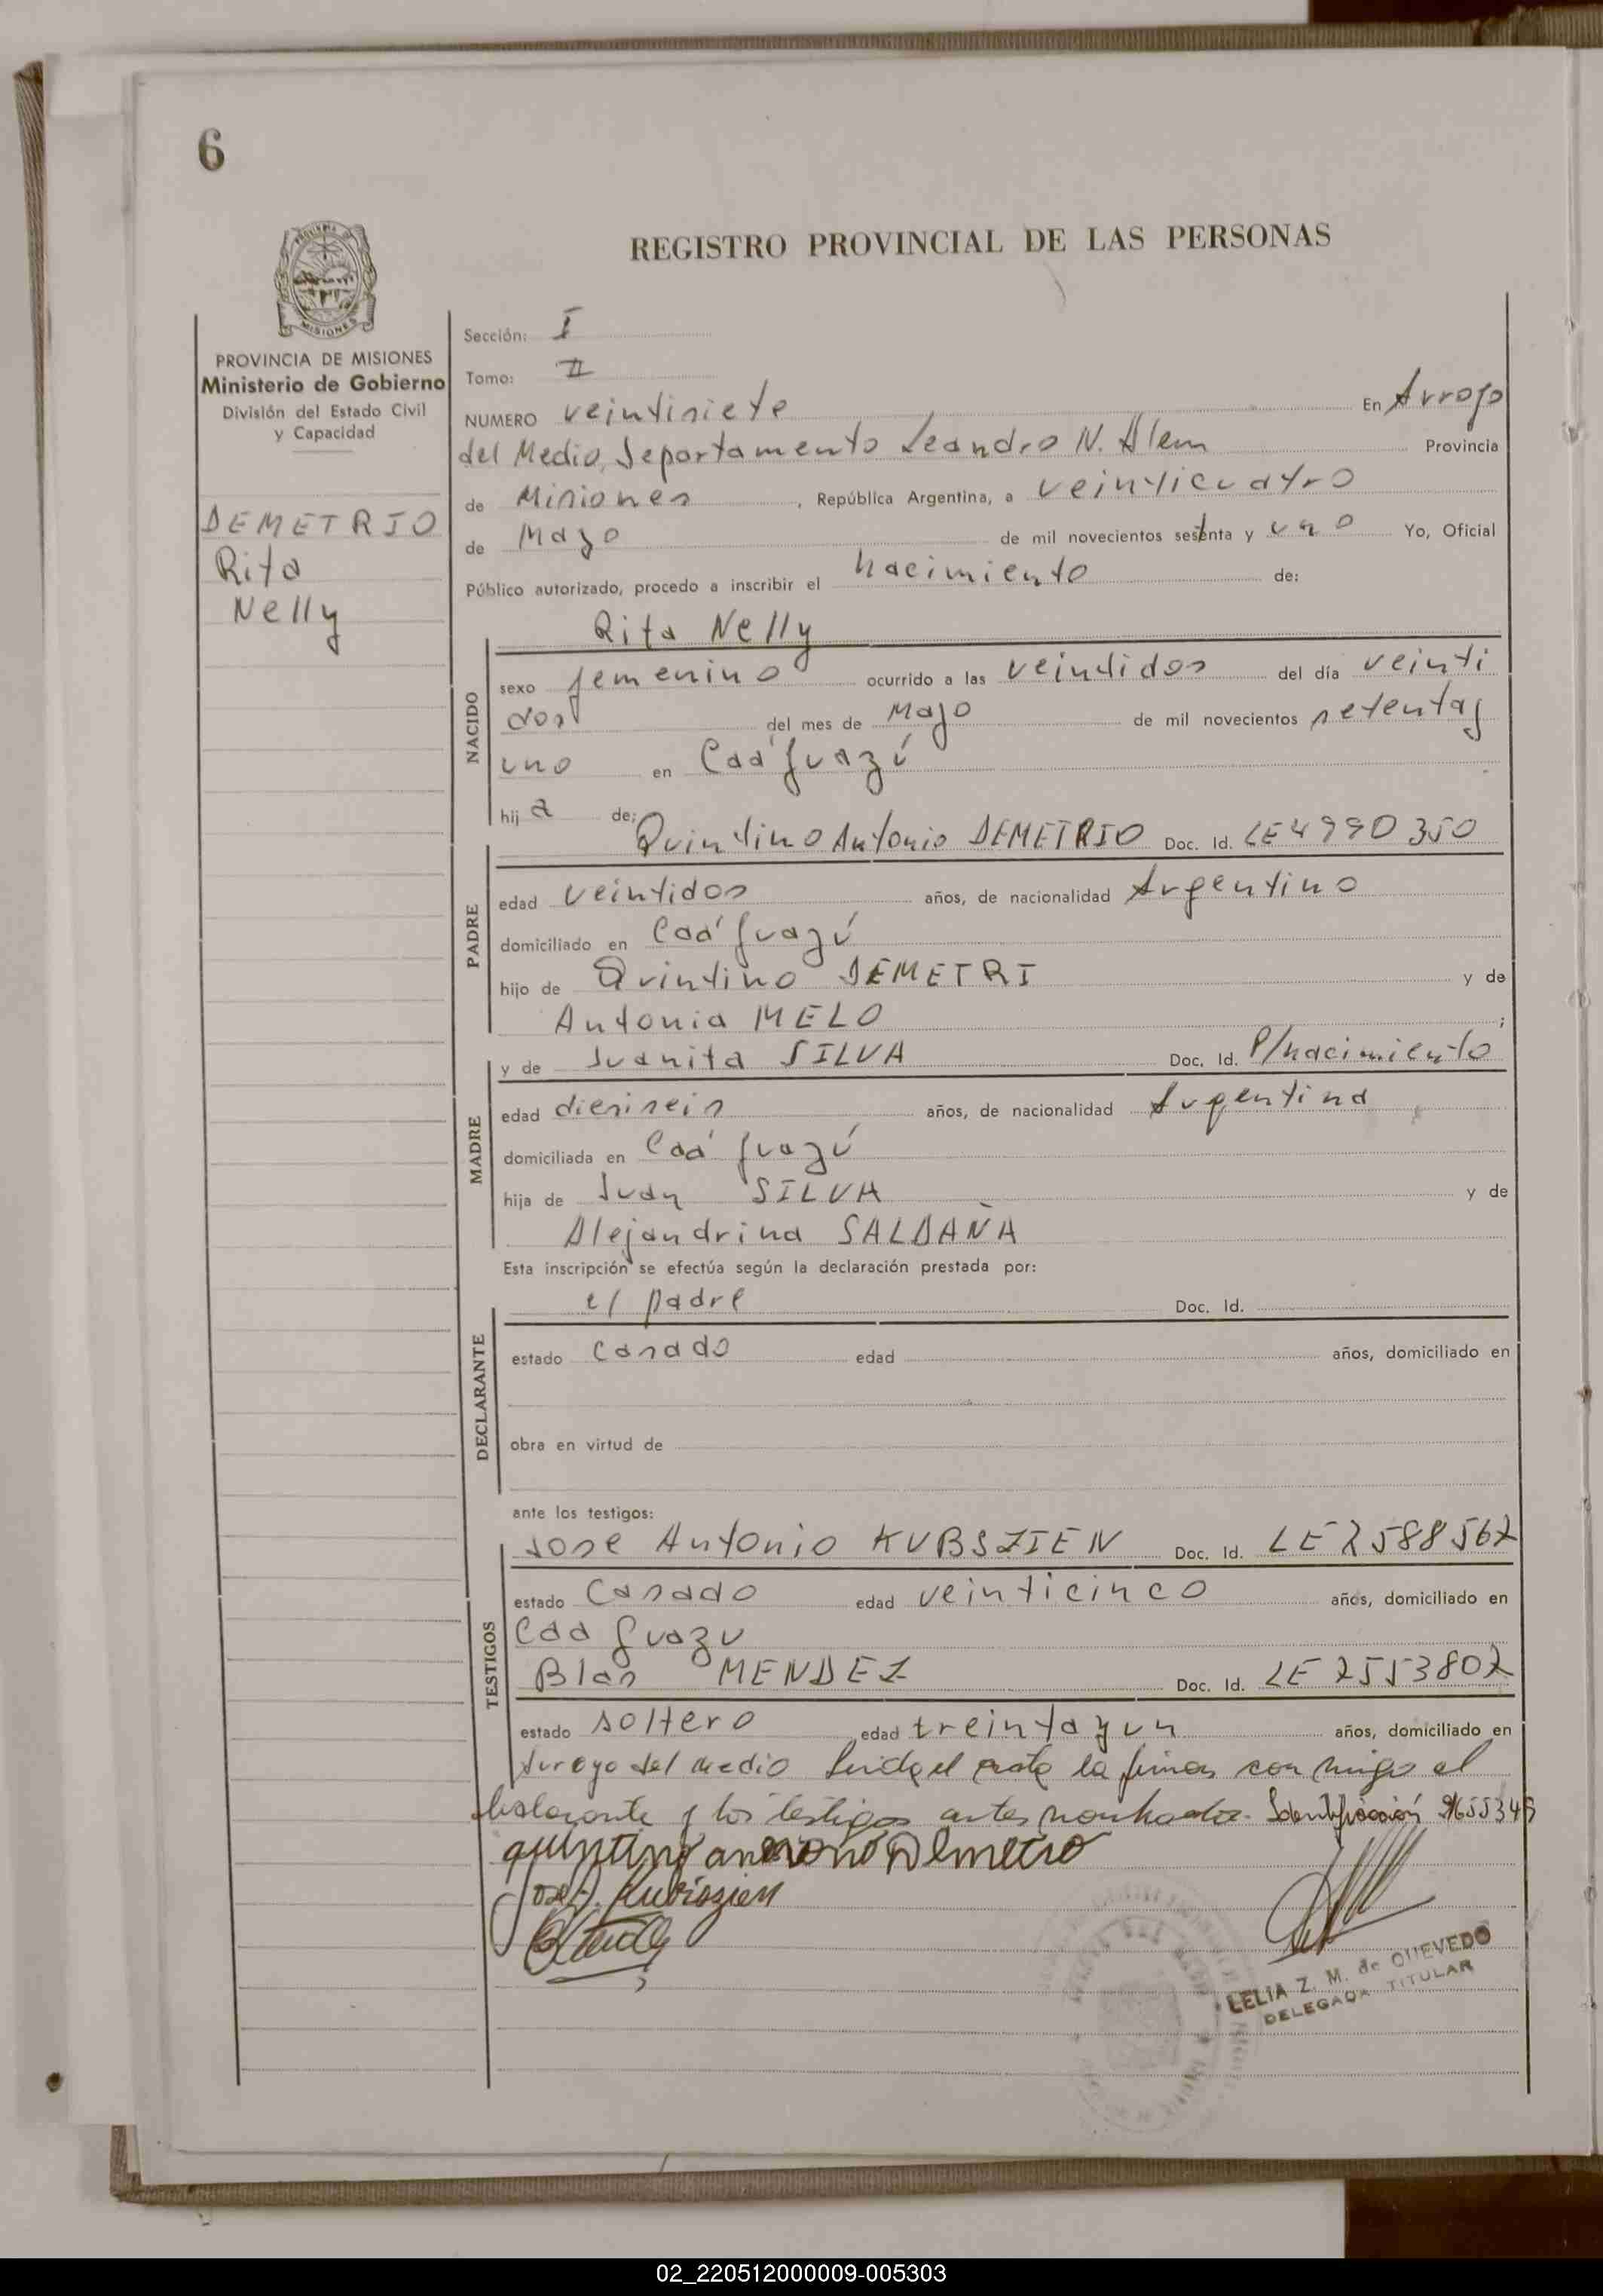 6
REGISTRO PROVINCIAL DE LAS PERSONAS
MISIONES
PROVINCIA DE MISIONES
Ministerio de Gobierno
División del Estado Civil
y Capacidad
DEMETRIO
Rita
Nelly
Sección: I
Tomo: II
NUMERO veintisiete En Arroyo
del Medio, Departamento Leandro N. Alem Provincia
de Misiones, República Argentina, a veinticuatro
de Mayo de mil novecientos setenta y uno Yo, Oficial
Público autorizado, procedo a inscribir el nacimiento de:
Rita Nelly
NACIDO
sexo femenino ocurrido a las veintidos del día veinti
dos del mes de Mayo de mil novecientos setentay
uno en Caá Guazú
hij a de:
Quintino Antonio DEMETRIO Doc. Id. LE4990350
PADRE
edad veintidos años, de nacionalidad Argentino
domiciliado en Caá Guazú
hijo de Quintino DEMETRI y de
Antonia MELO ;
y de Juanita SILVA Doc. Id. P/nacimiento
MADRE
edad diesiseis años, de nacionalidad Argentina
domiciliada en Caá Guazú
hija de Juan SILVA y de
Alejandrina SALDAÑA
Esta inscripción se efectúa según la declaración prestada por:
el padre Doc. Id.
DECLARANTE
estado Casado edad años, domiciliado en
obra en virtud de
ante los testigos:
Jose Antonio KUBSZIEN Doc. Id. LE 2588567
TESTIGOS
estado Casado edad veinticinco años, domiciliado en
Caa Guazu
Blas MENDEZ Doc. Id. LE 2553802
estado soltero edad treintayun años, domiciliado en
Arroyo del Medio Leida el acta la firman con migo el
declarante y los testigos antes nombrados. Identificación
quintino antonio Demetrio
Jose A. Kubiszien
LELIA Z. M. de QUEVEDO
DELEGADA TITULAR
02_220512000009-005303